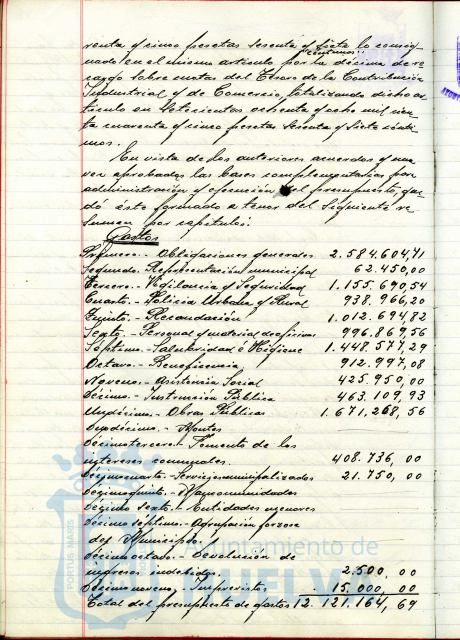 renta y cinco pesetas sesenta y siete lo consig-
céntimos..
nado en el mismo artículo por la décima de re-
cargo sobre cuotas del Tesoro de la Contribución
Industrial y de Comercio, totalizando dicho ar-
tículo en setecientas ochenta y ocho mil cien-
ta cuarenta y cinco pesetas sesenta y siete cénti-
mos.
En vista de los anteriores acuerdos y una
vez aprobadas las bases complementarias para
administración y ejecución del presupuesto, que-
dó éste formado a tenor del siguiente re-
sumen por capítulos:
Gastos
Primero.- Obligaciones generales 2.584.604,71
Segundo.- Representación municipal 62.450,00
Tercero.- Vigilancia y Seguridad 1.155.690,54
Cuarto.- Policía Urbana y Rural 938.966,20
Quinto.- Recaudación 1.012.694,82
Sexto.- Personal y material de oficinas 996.869,56
Séptimo.- Salubridad é Higiene 1.448.577,29
Octavo.- Beneficencia 912.997,08
Noveno.- Asistencia Social 425.950,00
Décimo.- Instrucción Pública 463.109,93
Undécimo.- Obras Públicas 1.671.268,56
Duodécimo.- Montes
Décimotercero.- Fomento de los
intereses comunales. 408.736,00
Décimocuarto.- Servicios municipalizados 21.750,00
Décimoquinto.- Mancomunidades
Décimo Sexto.- Entidades menores
Décimo séptimo.- Agrupación forzosa
del Municipio.
Décimo octavo.- Devolución de
ingresos indebidos. 2.500,00
Décimo noveno.- Imprevistos 15.000,00
Total del presupuesto de gastos 12.121.164,69
Ayuntamiento de
HUELVA
PORTUS MARIS